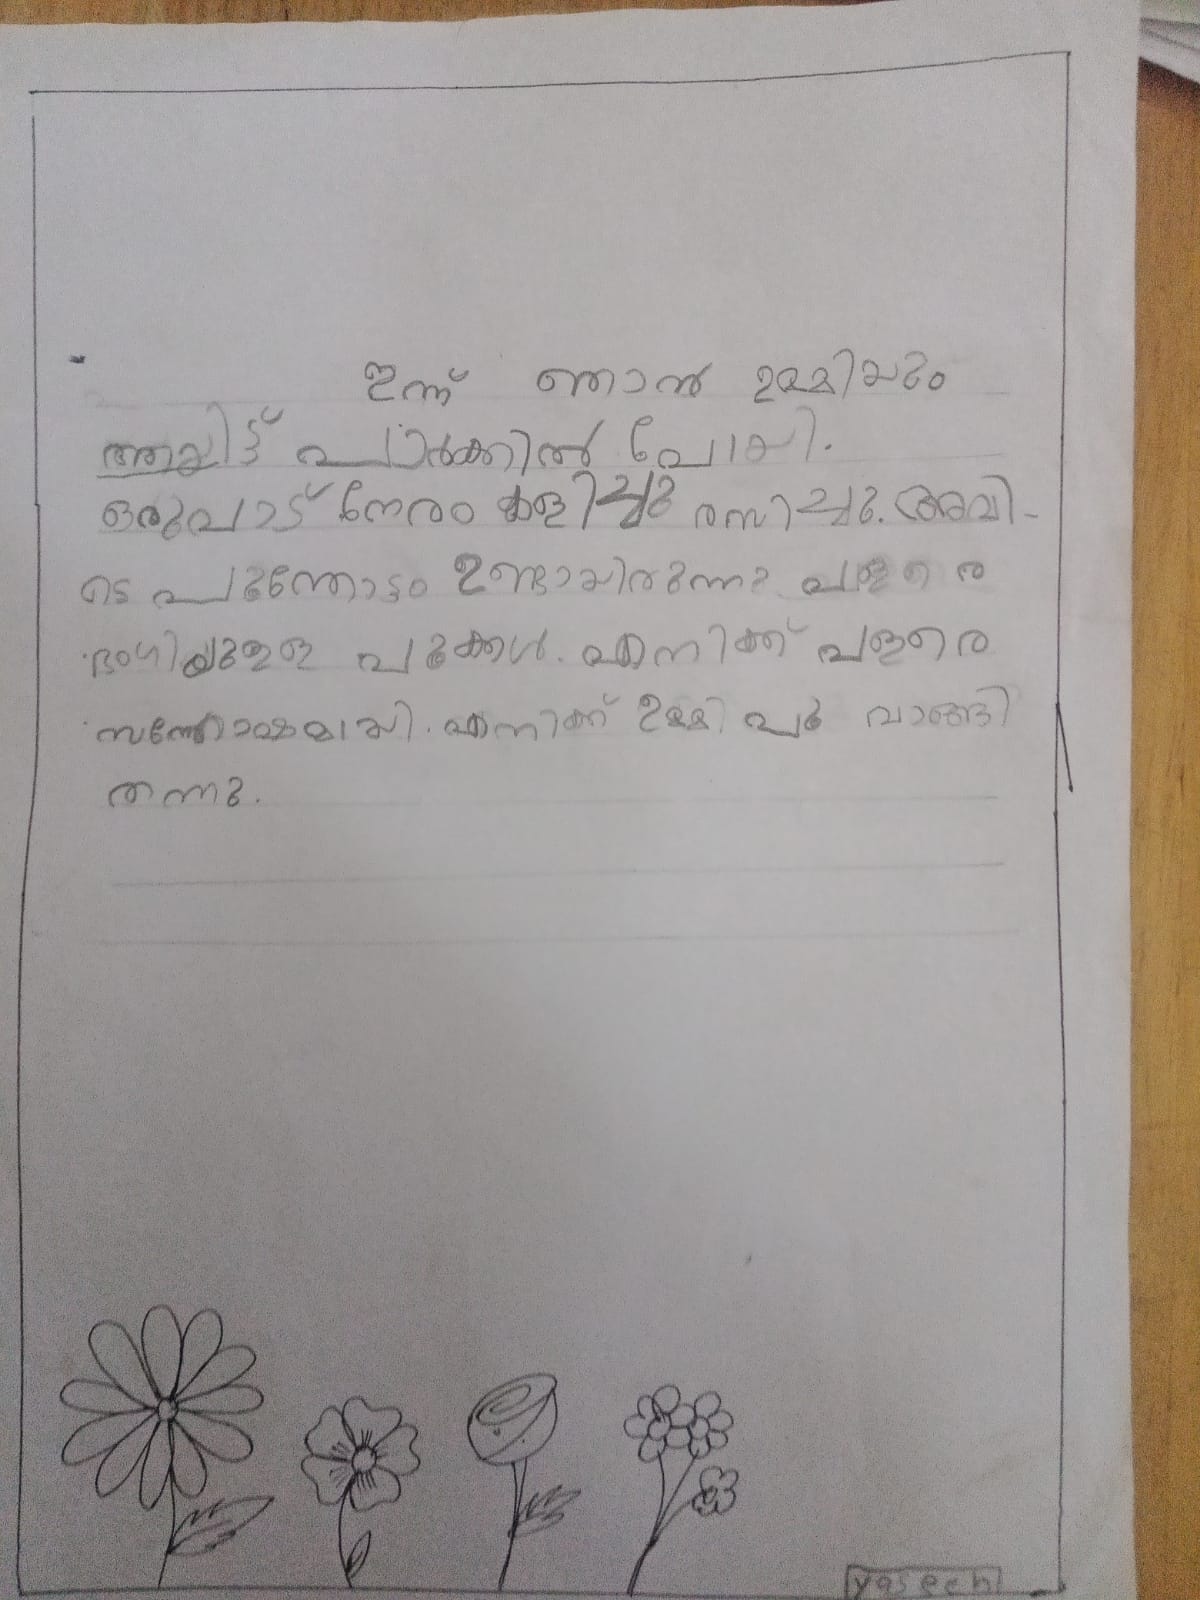 ഇന്ന് ഞാൻ ഉമ്മിയും
ആയിട്ട് പാർക്കിൽ പോയി.
ഒരുപാട് നേരം കളിച്ചു രസിച്ചു. അവി-
ടെ പൂന്തോട്ടം ഉണ്ടായിരുന്നു. വളരെ
ഭംഗിയുള്ള പൂക്കൾ. എനിക്ക് വളരെ
സന്തോഷമായി. എനിക്ക് ഉമ്മി പൂ വാങ്ങി
തന്നു.
yaseen